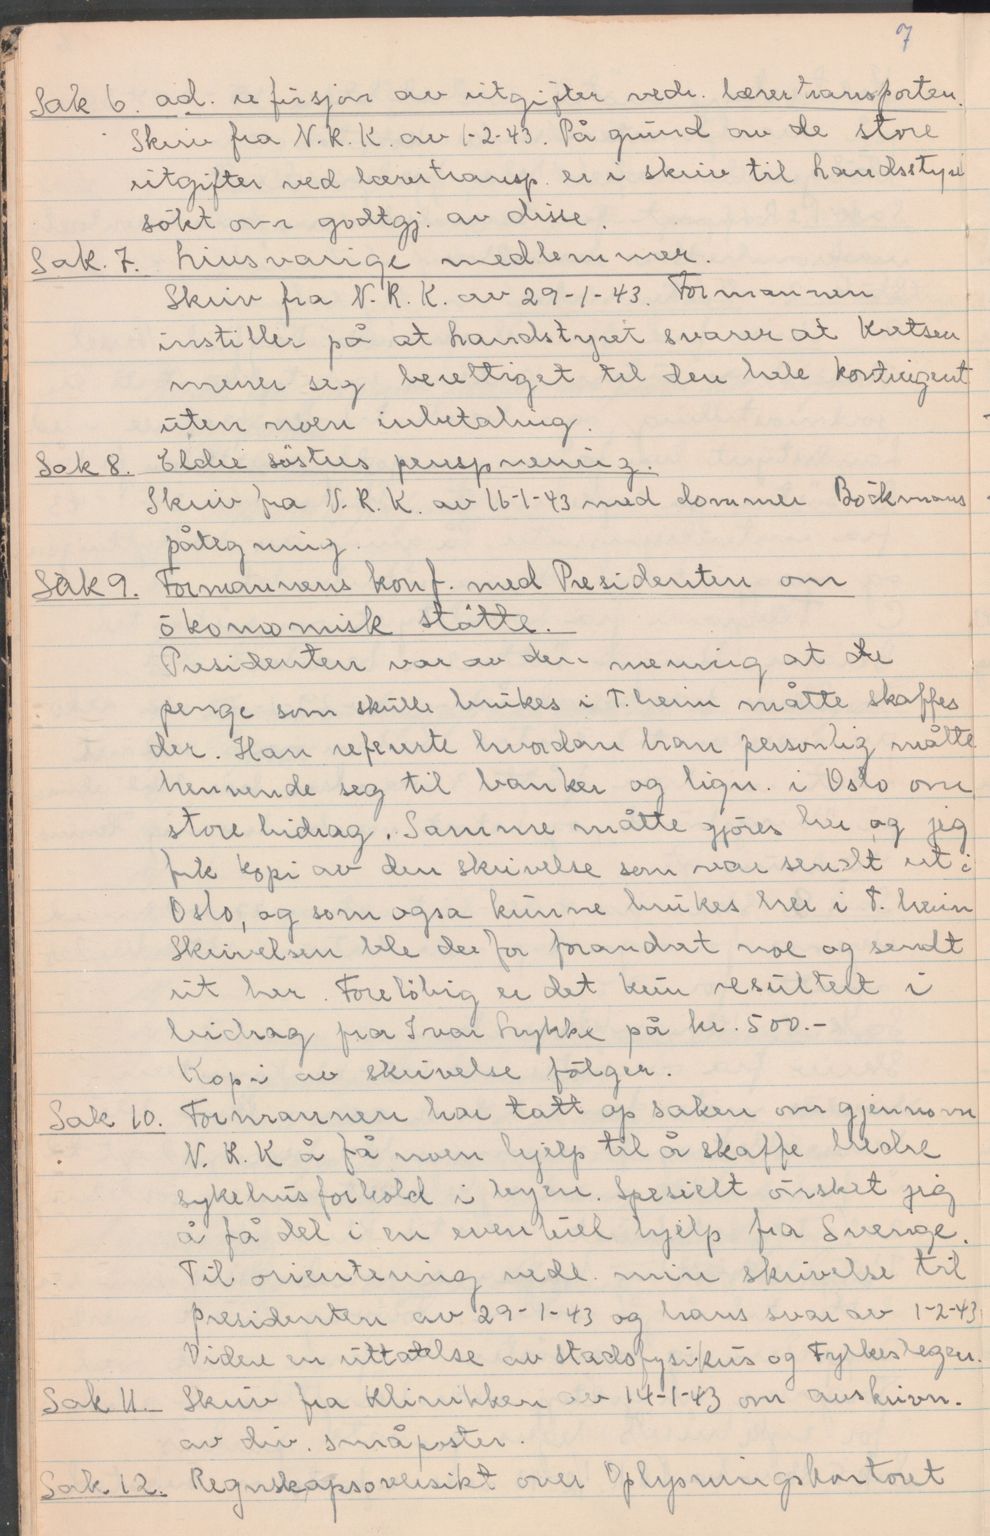 7
Sak 6. ad. refusjon av utgifter vedr. lærertransporten.
Skriv fra N.R.K. av 1-2-43. På grund av de store
utgifter ved lærertransp. er i skriv til handsstyre
sökt om godtgj. av disse.
Sak. 7. Livsvarige medlemmer.
Skriv fra N.R.K. av 29-1-43. Formannen
instiller på at handstyret svarer at Kretsen
mener seg berettiget til den hele kontingent
uten noen inbetaling.
Sak 8. Eldre söstres pensjonering.
Skriv fra N.R.K. av 16-1-43 med dommer Böckmans
påtegning.
Sak 9. Formannens konf. med Presidenten om
ökonomisk stötte.
Presidenten var av den mening at de
penge som skulle brukes i T.heim måtte skaffes
der. Han refererte hvordan han personlig måtte
henvende seg til banker og lign. i Oslo om
store bidrag. Samme måtte gjöres her og jeg
fik kopi av den skrivelse som var sendt ut i
Oslo, og som ogsa kunne brukes her i T.heim
Skrivelsen ble derfor forandret noe og sendt
ut her. Forelöbig er det kun resultert i
bidrag fra Ivar Lykke på kr. 500.-
Kopi av skrivelse fölger.
Sak 10. Formannen har tatt op saken om gjennom
N.R.K å få noen hjelp til å skaffe bedre
sykehusforhold i byen. Spesielt önsket jeg
å få del i en eventuel hjelp fra Sverige.
Til orientering vedl. min skrivelse til
presidenten av 29-1-43 og hans svar av 1-2-43
Videre en uttatelse av stadsfysikus og Fylkeslegen.
Sak 11. Skriv fra Klinikken av 14-1-43 om avskrivn.
av div. småposter.
Sak 12. Regnskapsoversikt over Oplysningskontoret